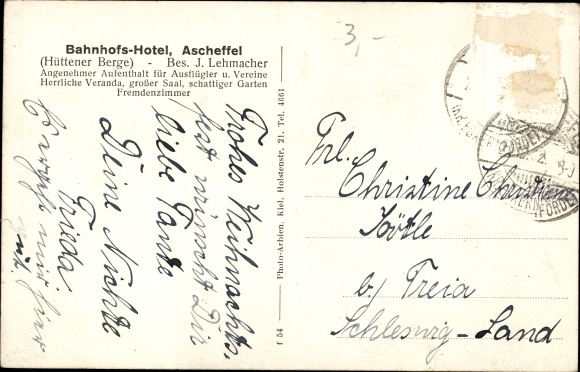 Bahnhofs-Hotel, Ascheffel
(Hüttener Berge) - Bes. J. Lehmacher
Angenehmer Aufenthalt für Ausflügler u. Vereine
Herrliche Veranda, großer Saal, schattiger Garten
Fremdenzimmer
3,-
Frohes Weihnachts-
fest wünscht Dir
liebe Tante
Deine Nichte
Frieda.
mir
Photo-Arhlen, Kiel, Holstenstr. 21. Tel. 4661
f 54
Frl.
Christine Christiansen
b/ Treia
Schleswig-Land